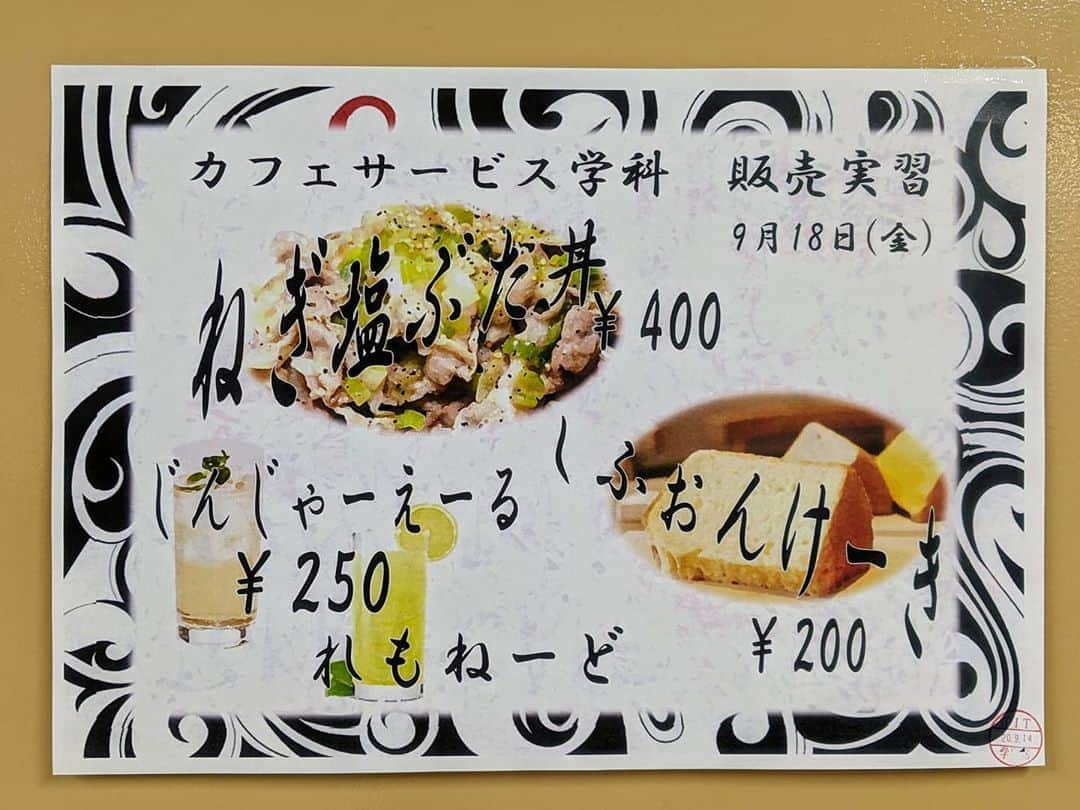 カフェサービス学科　販売実習
9月18日(金)
ねぎ塩ぶた丼
¥400
しふぉんけーき
¥200
じんじゃーえーる
¥250
れもねーど
20.9.14